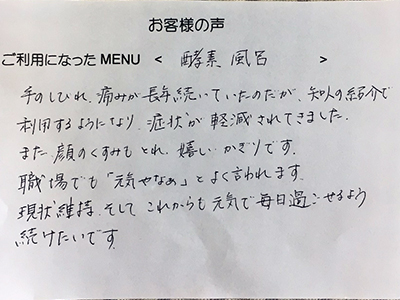 お客様の声
ご利用になった MENU < 酵素風呂 >
手のしびれ、痛みが長年続いていたのだが、知人の紹介で
利用するようになり、症状が軽減されてきました。
また、顔のくすみもとれ、嬉しいかぎりです。
職場でも「元気やなぁ」とよく言われます。
現状維持、そしてこれからも元気で毎日過ごせるよう
続けたいです。